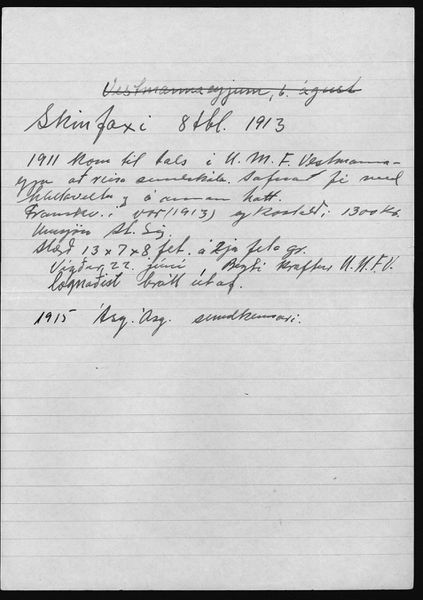 Vestmannaeyjum, 6. ágúst
Skinfaxi 8 tbl. 1913
1911 kom til tals í U.M.F. Vestmanna-
eyja að reisa sundskála. Safnað fé með
hlutaveltu og á annan hátt.
Framkv.: vor (1913) og kostaði: 1300 kr.
Umsjón St. Sig.
Stærð 13 x 7 x 8 fet. á 2ja feta gr.
Vígður 22. júní. kraftur U.M.F.V.
brátt út af.
1915 Ásg. Ásg. sundkennari.